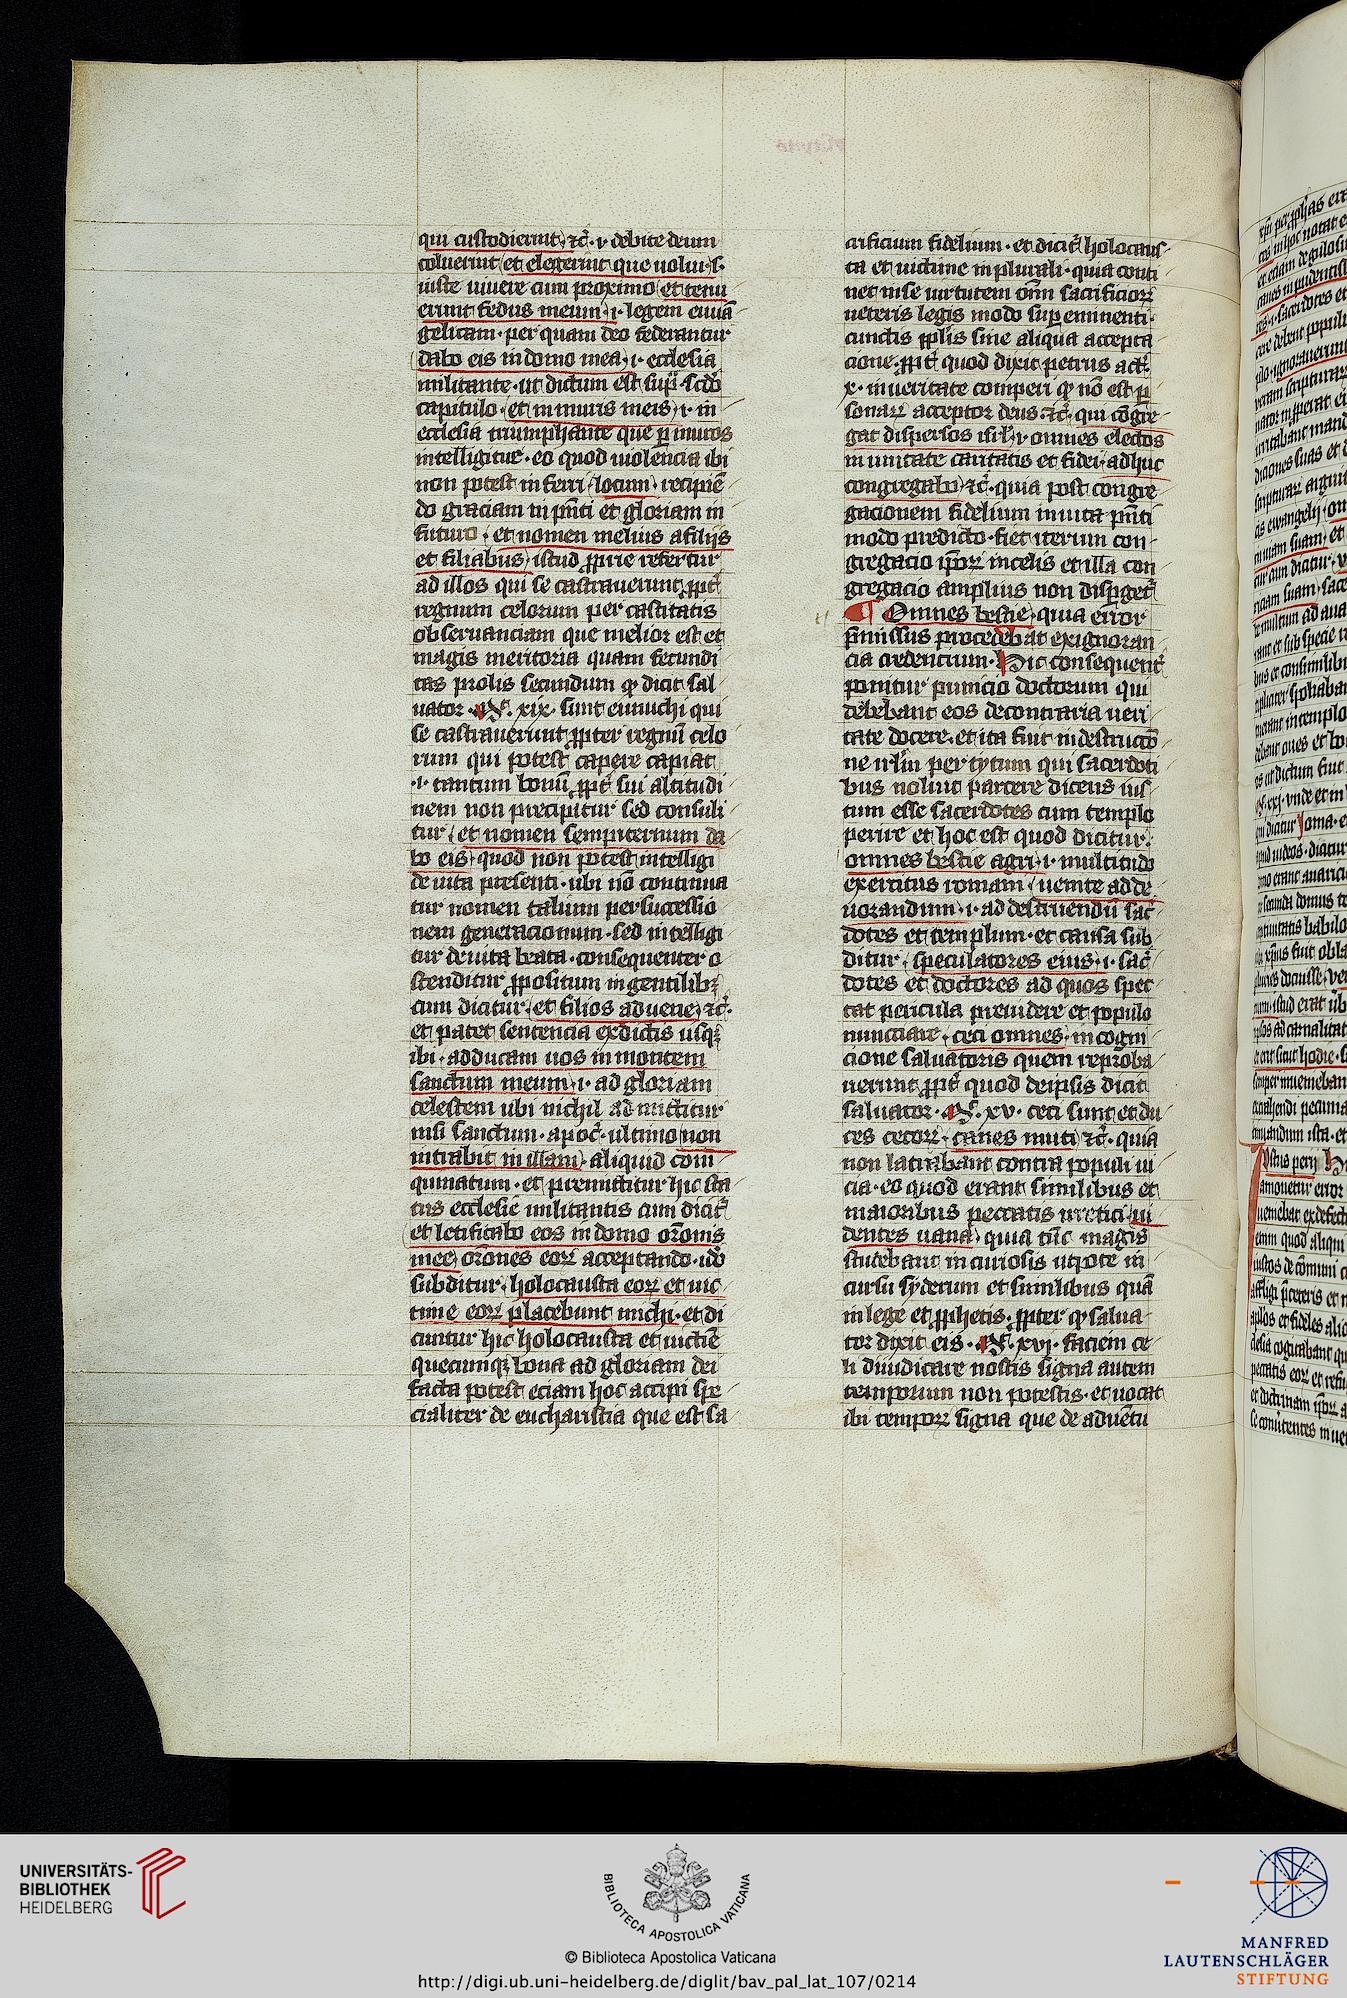 qui custodierint · ⁊c̃ · i · debite deum
coluerint et elegerint que uolui · s ·
iuste uiuere cum proximo et tenu
erint fedus meum · i · legem euuã
gelicam · per quam deo federantur
dabo eis in domo mea · i · ecclesia
militante · ut dictum est supͣ · scd̾o
capitulo · et in muris meis · i · in
ecclesia triumphante que ꝑ muros
intelligitur · eo quod uiolencia ibi
non potest inferri locum recipiẽ
do graciam in pñti et gloriam in
futuro · et nomen melius a filijs
et filiabus istud ꝓprie refertur
ad illos qui se castrauerunt ꝓpt̾
regnum celorum per castitatis
obseruanciam que melior est et
magis meritoria quam fecundi
tas prolis secundum ꝙ dicit sal
uator · xix · sunt eunuchi qui
se castrauerunt ꝓpter regnũ celo
rum qui potest capere capiat
· i · tantum bonũ ꝓpt̾ sui altitudi
nem non precipitur sed consuli
tur et nomen sempiternum da
bo eis quod non potest intelligi
de uita presenti · ubi nõ continua
tur nomen talium per successio
nem generacionum · sed intelligi
tur de uita beata · consequenter o
stenditur ꝓpositum in gentilibꝫ
cum dicitur et filios aduene ⁊c̃ ·
et patet sentencia ex dictis usqꝫ
ibi · adducam uos in montem
sanctum meum · i · ad gloriam
celestem ubi nichil admittitur
nisi sanctum · apoc̾ · ultimo non
intrabit in illam aliquid coin
quinatum · et premittitur hic sta
tus ecclesie militantis cum dicit̾
et letificabo eos in domo or̃onis
mee or̃ones eoꝝ acceptando · id̾o
subditur holocausta eoꝝ et uic
time eoꝝ placebunt michi · et di
cuntur hic holocausta et uictĩe
quecumqꝫ bona ad gloriam dei
facta potest eciam hoc accipi spe
cialiter de eucharistia que est sa
crificium fidelium · et dicit̾ holocaus
ta et uictime in plurali · quia conti
net in se uirtutem om̃ sacrificioꝝ
ueteris legis modo suꝑ eminenti ·
cunctis pplis sine aliqua accepta
cione · ꝓpt̾ quod dixit petrus act̾ ·
x · in ueritate comperi ꝙ nõ est ꝑ
sonaꝝ acceptor deus · ⁊c̃ · qui cõgre
gat dispersos isr̃l · i · omnes electos
in unitate caritatis et fidei adhuc
congregabo ⁊c̃ · quia post congre
gacionem fidelium in uita pñti
modo predicto · fiet iterum con
gregacio ip̃oꝝ in celis et illa con
gregacio amplius non disꝑget̾
¶ Omnes bestie · quia error
p̃missus procedebat ex ignoran
cia credentium · Hic consequent̾
ponitur punicio doctorum qui
debebant eos de contraria ueri
tate docere · et ita fuit in destructõ
ne irl̃m per tytum qui sacerdoti
bus noluit parcere dicens ius
tum esse sacerdotes cum templo
perire et hoc est quod dicitur ·
omnes bestie agri · i · multitudo
exercitus romani uenite ad de
uorandum · i · ad destruendũ sac̾
dotes et templum · et causa sub
ditur speculatores eius · i · sac̾
dotes et doctores ad quos spec
tat pericula preuidere et populo
nunctiare · ceci omnes in cogni
cione saluatoris quem reproba
uerunt ꝓpt̾ quod de ipsis dicit
saluator · xv · ceci sunt et du
ces cecoꝝ · canes muti ⁊c̃ · quia
non latrabant contra populi ui
cia · eo quod erant similibus et
maioribus peccatis irretiti ui
dentes uana quia tũc magis
studebant in curiosis utpote in
cursu syderum et similibus quã
in lege et ꝓphetis · ꝓpter ꝙ salua
tor dixit eis · xvi · faciem ce
li diiudicare nostis signa autem
temporum non potestis · et uocat
ibi tempoꝝ signa que de aduentu
UNIVERSITÄTS-
BIBLIOTHEK
HEIDELBERG
BIBLIOTECA APOSTOLICA VATICANA
© Biblioteca Apostolica Vaticana
http://digi.ub.uni-heidelberg.de/diglit/bav_pal_lat_107/0214
MANFRED
LAUTENSCHLÄGER
STIFTUNG